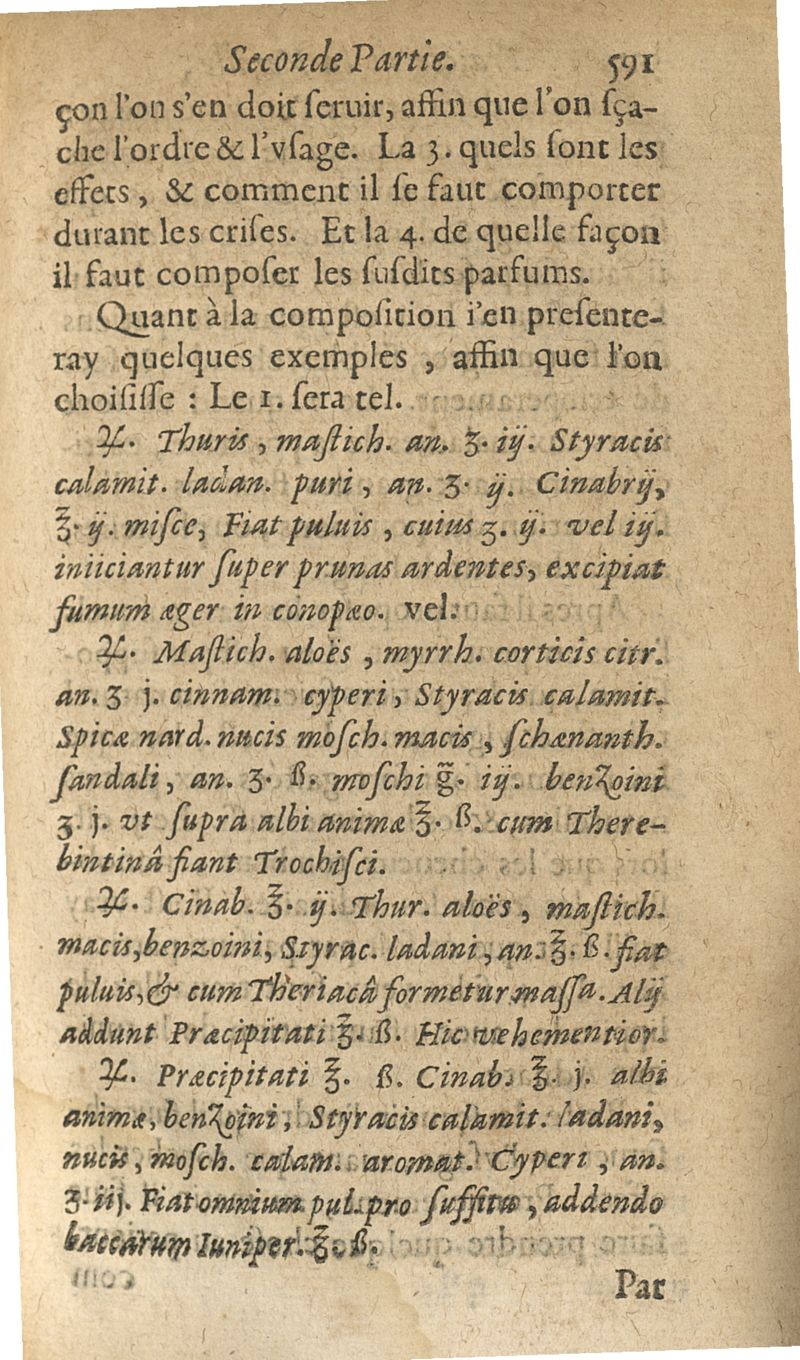 Seconde Partie. 591
çon l'on s'en doit ſeruir, affin que l'on ſça-
che l'ordre & l'vſage. La 3. quels ſont les
effets, & comment il ſe faut comporter
durant les criſes. Et la 4. de quelle façon
il faut compoſer les ſuſdits parfums.
Quant à la compoſition i'en preſente-
ray quelques exemples, affin que l'on
choiſiſſe : Le 1. ſera tel.
♃. Thuris, maſtich. an. ʒ. iÿ. Styracis
calamit. ladan. puri, an. ʒ. ÿ. Cinabrÿ,
℥. ÿ. miſce, Fiat puluis, cuius ʒ. ÿ. vel iÿ.
iniiciantur ſuper prunas ardentes, excipiat
fumum æger in conopæo. vel.
♃. Maſtich. aloës, myrrh. corticis citr.
an. ʒ j. cinnam. cyperi, Styracis calamit.
Spicæ nard. nucis moſch. macis, ſchænanth.
ſandali, an. ʒ. ß. moſchi g̃. iÿ. benzoini
ʒ. j. vt ſupra albi animæ ℥. ß. cum There-
bintinâ fiant Trochiſci.
♃. Cinab. ℥. ÿ. Thur. aloës, maſtich.
macis, benzoini, Styrac. ladani, an. ℥. ß. fiat
puluis, & cum Theriacâ formetur maſſa. Alÿ
addunt Præcipitati ℥. ß. Hic vehementior.
♃. Præcipitati ℥. ß. Cinab. ℥. j. albi
animæ, benzoini, Styracis calamit. ladani,
nucis, moſch. calam. aromat. Cyperi, an.
ʒ. iij. Fiat omnium pul. pro ſuffitu, addendo
baccarum Iuniper. ℥. ß.
Par